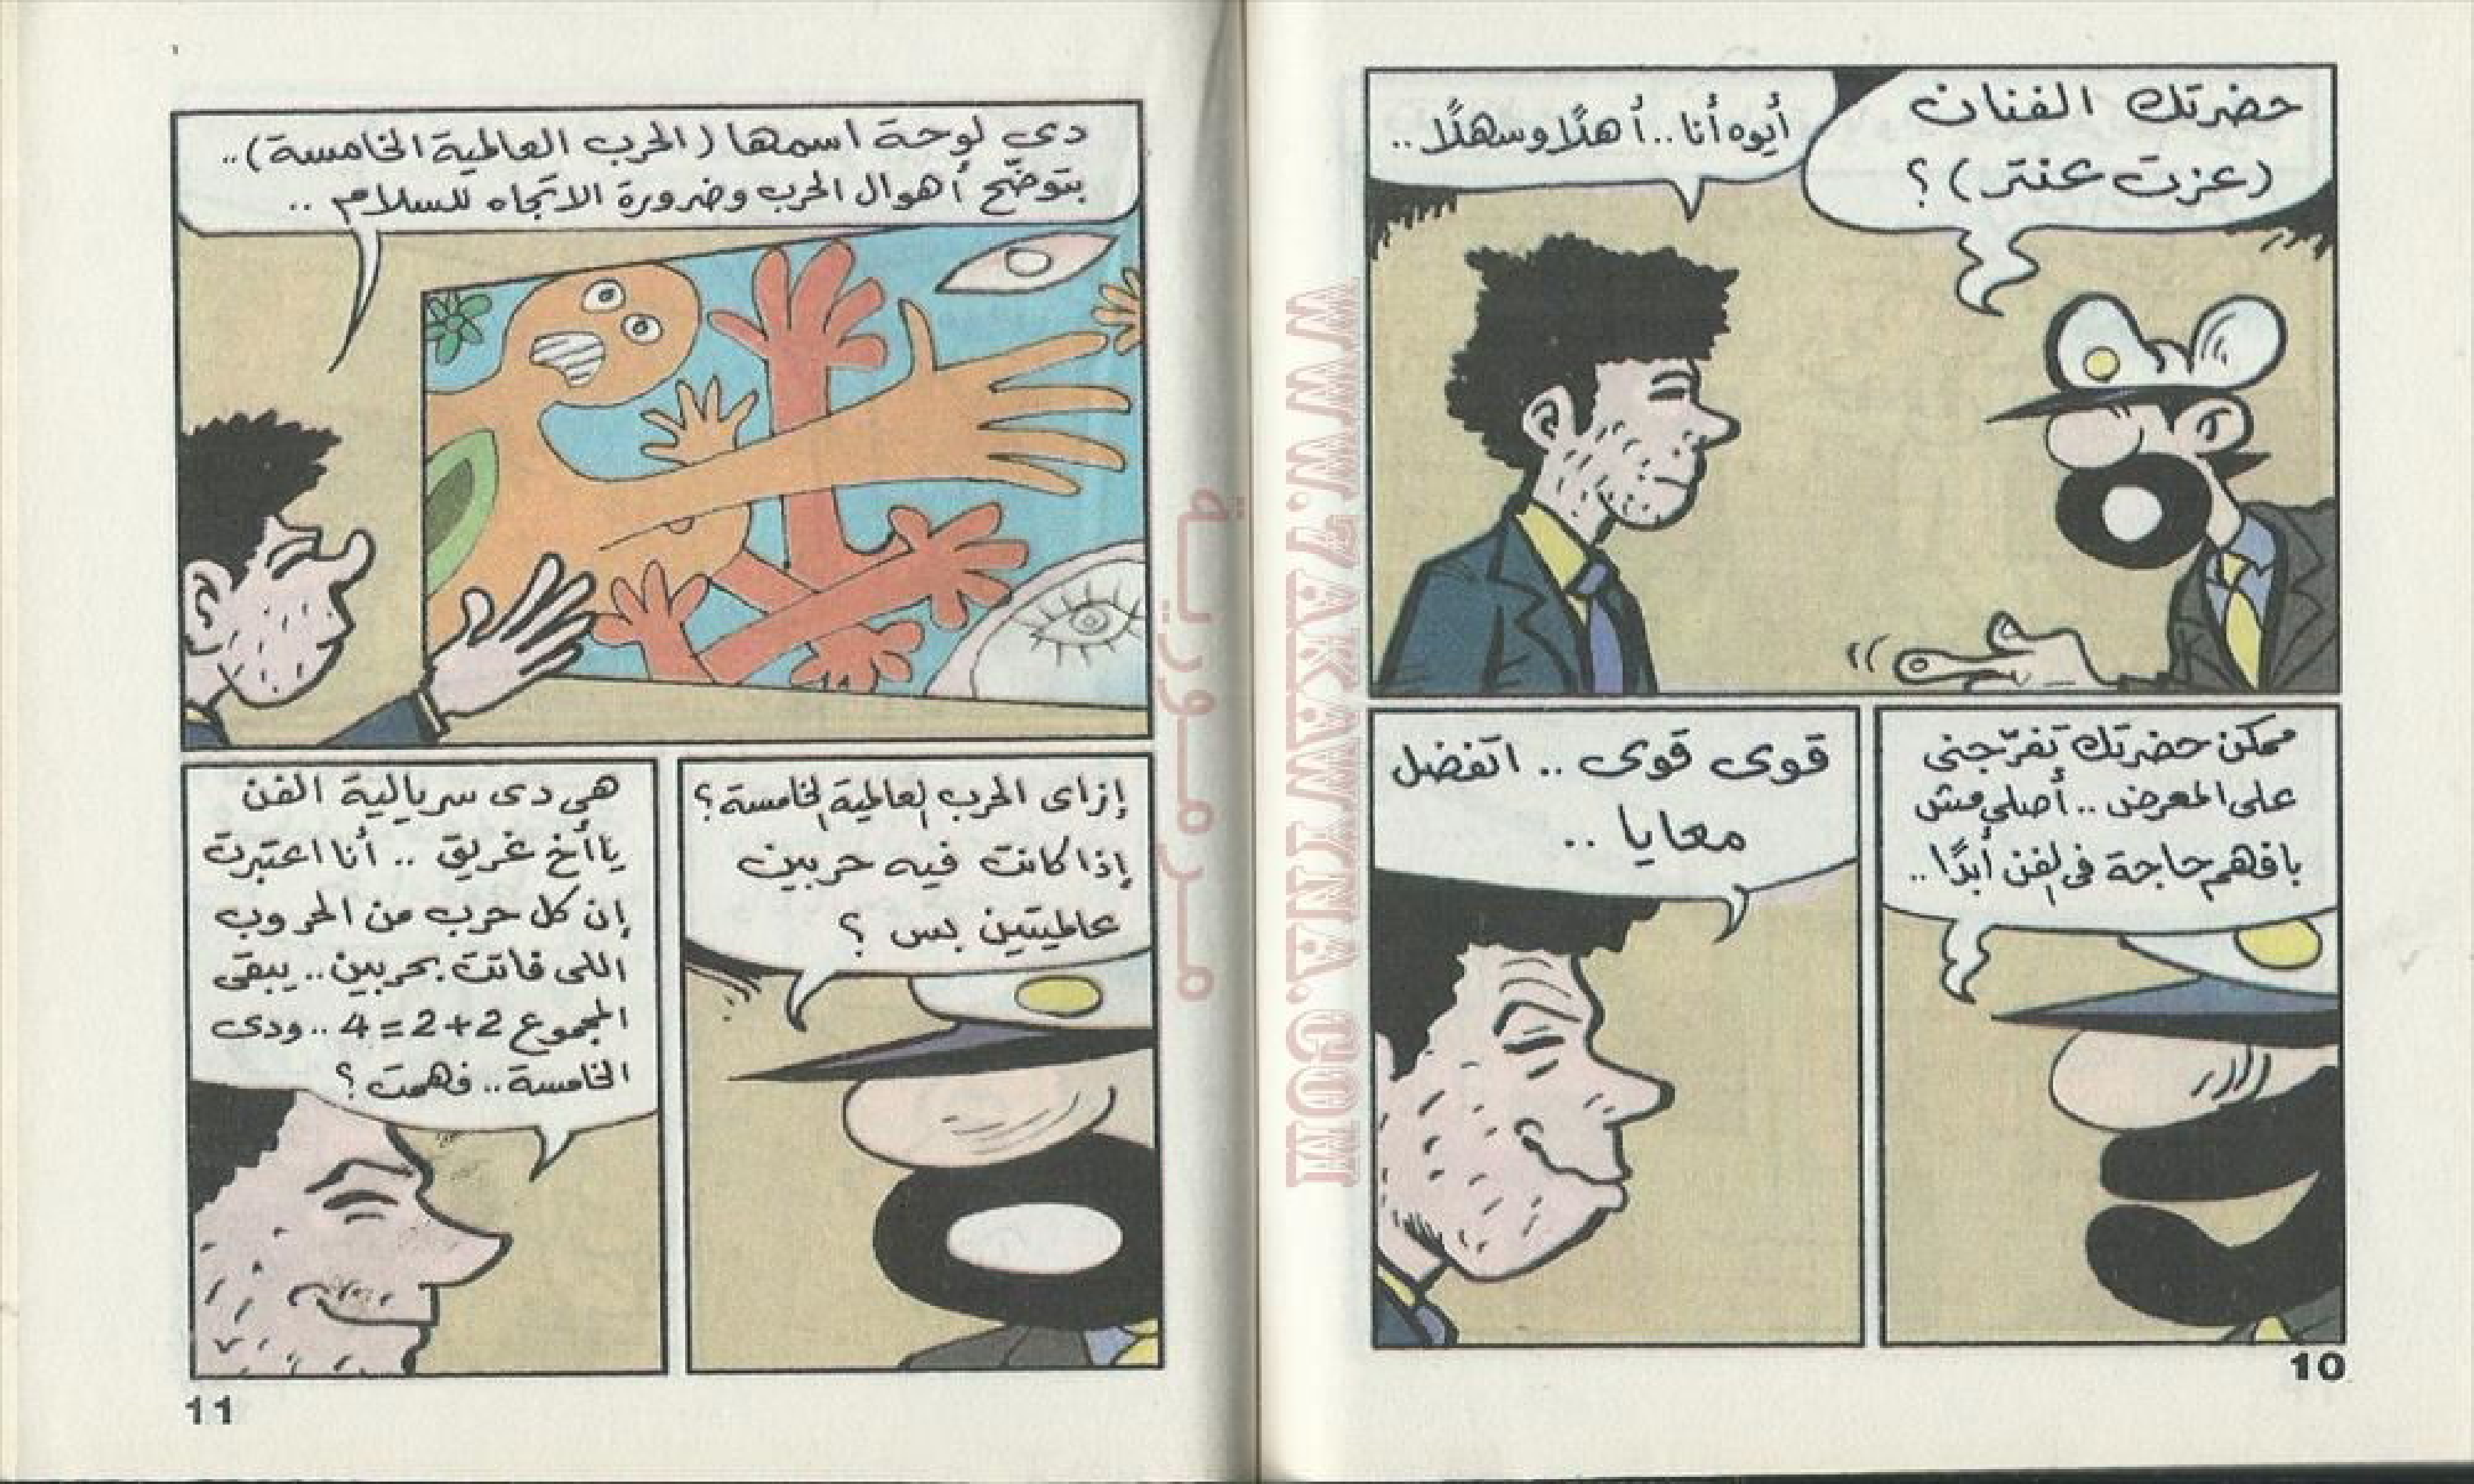 حضرتك الفنان
(عزت عنتر) ؟
أيوه أنا.. أهلًا وسهلًا..
ممكن حضرتك تفرّجنى
على المعرض .. أصلى مش
بافهم حاجة فى الفن أبدًا ..
قوى قوى .. اتفضل
معايا ..
10
دى لوحة اسمها (الحرب العالمية الخامسة) ..
بتوضّح أهوال الحرب وضرورة الاتجاه للسلام ..
إزاى الحرب العالمية الخامسة ؟
إذا كانت فيه حربين
عالميتين بس ؟
هى دى سريالية الفن
يا أخ غريق .. أنا اعتبرت
إن كل حرب من الحروب
اللى فاتت بحربين .. يبقى
المجموع 2+2=4 .. ودى
الخامسة .. فهمت ؟
11
مرمورية